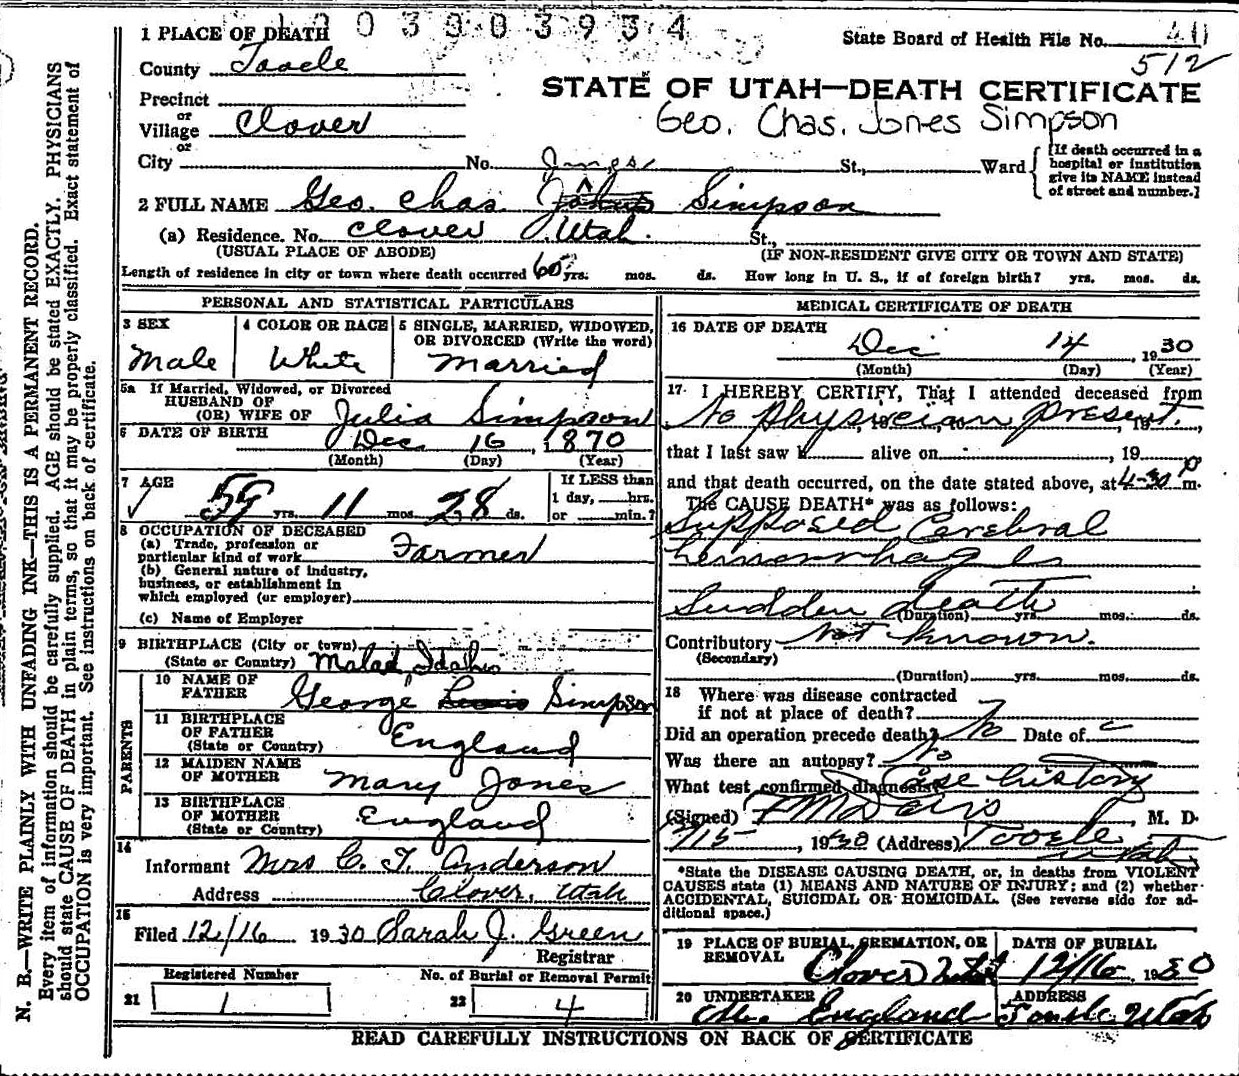 1 PLACE OF DEATH 0 3 0 0 3 9 3 4
State Board of Health File No. 40
County Tooele
512
Precinct
STATE OF UTAH—DEATH CERTIFICATE
or
Village Clover
Geo. Chas. Jones Simpson
or
City No. St., Ward
[If death occurred in a hospital or institution give its NAME instead of street and number.]
Jones
2 FULL NAME Geo. Chas. Simpson
(a) Residence. No. Clover Utah. St.,
(USUAL PLACE OF ABODE) (IF NON-RESIDENT GIVE CITY OR TOWN AND STATE)
Length of residence in city or town where death occurred yrs. mos. ds. How long in U. S., if of foreign birth? yrs. mos. ds.
PERSONAL AND STATISTICAL PARTICULARS
3 SEX 4 COLOR OR RACE 5 SINGLE, MARRIED, WIDOWED, OR DIVORCED (Write the word)
Male White Married
5a If Married, Widowed, or Divorced
HUSBAND OF
(OR) WIFE OF Julia Simpson
6 DATE OF BIRTH Dec. 16, 1870
(Month) (Day) (Year)
7 AGE 59 yrs. 11 mos. 28 ds.
If LESS than
1 day, hrs.
or min.?
8 OCCUPATION OF DECEASED
(a) Trade, profession or
particular kind of work Farmer
(b) General nature of industry,
business, or establishment in
which employed (or employer)
(c) Name of Employer
9 BIRTHPLACE (City or town)
(State or Country) Malad Idaho
PARENTS
10 NAME OF
FATHER George Simpson
11 BIRTHPLACE
OF FATHER England
(State or Country)
12 MAIDEN NAME
OF MOTHER Mary Jones
13 BIRTHPLACE
OF MOTHER England
(State or Country)
14
Informant Mrs C. T. Anderson
Address Clover, Utah
15
Filed 12/16 1930 Sarah J. Green
Registrar
Registered Number No. of Burial or Removal Permit
21 1 22 4
MEDICAL CERTIFICATE OF DEATH
16 DATE OF DEATH
Dec 14, 1930
(Month) (Day) (Year)
17 I HEREBY CERTIFY, That I attended deceased from
No physician present.
that I last saw h alive on , 19
and that death occurred, on the date stated above, at 4-30 P m.
The CAUSE DEATH* was as follows:
Supposed Cerebral
Hemorrhage
Sudden death
(Duration) yrs. mos. ds.
Contributory Not known.
(Secondary)
(Duration) yrs. mos. ds.
18 Where was disease contracted
if not at place of death?
Did an operation precede death? No Date of
Was there an autopsy? No
What test confirmed diagnosis? Case history
(Signed) F M Davis, M. D.
, 1930 (Address) Tooele
Utah
*State the DISEASE CAUSING DEATH, or, in deaths from VIOLENT
CAUSES state (1) MEANS AND NATURE OF INJURY; and (2) whether
ACCIDENTAL, SUICIDAL OR HOMICIDAL. (See reverse side for ad-
ditional space.)
19 PLACE OF BURIAL, CREMATION, OR DATE OF BURIAL
REMOVAL Clover Utah 12/16 1930
20 UNDERTAKER ADDRESS
England Tooele Utah
READ CAREFULLY INSTRUCTIONS ON BACK OF CERTIFICATE
N. B.—WRITE PLAINLY WITH UNFADING INK—THIS IS A PERMANENT RECORD.
Every item of information should be carefully supplied. AGE should be stated EXACTLY. PHYSICIANS
should state CAUSE OF DEATH in plain terms, so that it may be properly classified. Exact statement of
OCCUPATION is very important. See instructions on back of certificate.